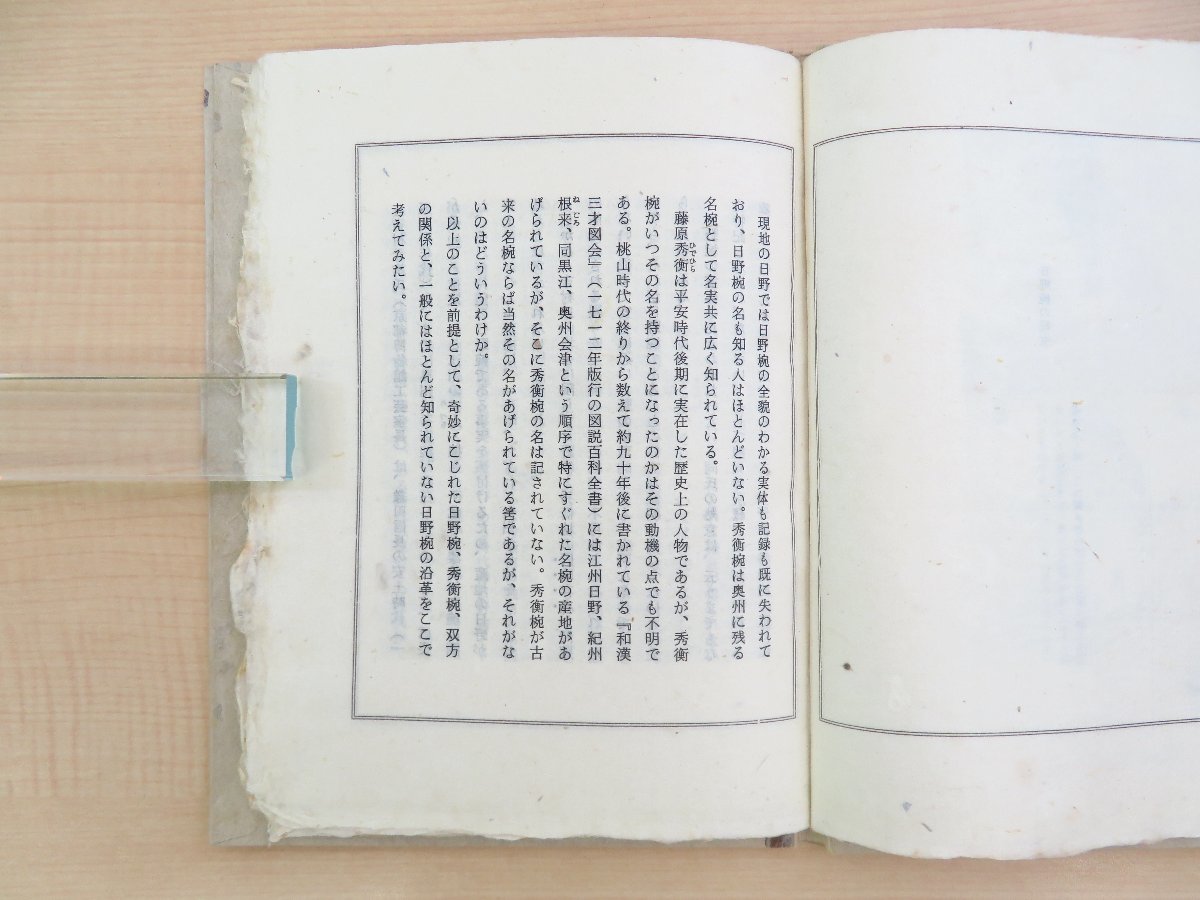 現地の日野では日野椀の全貌のわかる実体も記録も既に失われて
おり、日野椀の名も知る人はほとんどいない。秀衡椀は奥州に残る
名椀として名実共に広く知られている。
藤原秀衡は平安時代後期に実在した歴史上の人物であるが、秀衡
椀がいつその名を持つことになったのかはその動機の点でも不明で
ある。桃山時代の終りから数えて約九十年後に書かれている『和漢
三才図会』（一七一二年版行の図説百科全書）には江州日野、紀州
根来、同黒江、奥州会津という順序で特にすぐれた名椀の産地があ
げられているが、そこに秀衡椀の名は記されていない。秀衡椀が古
来の名椀ならば当然その名があげられている筈であるが、それがな
いのはどういうわけか。
以上のことを前提として、奇妙にこじれた日野椀、秀衡椀、双方
の関係と、一般にはほとんど知られていない日野椀の沿革をここで
考えてみたい。